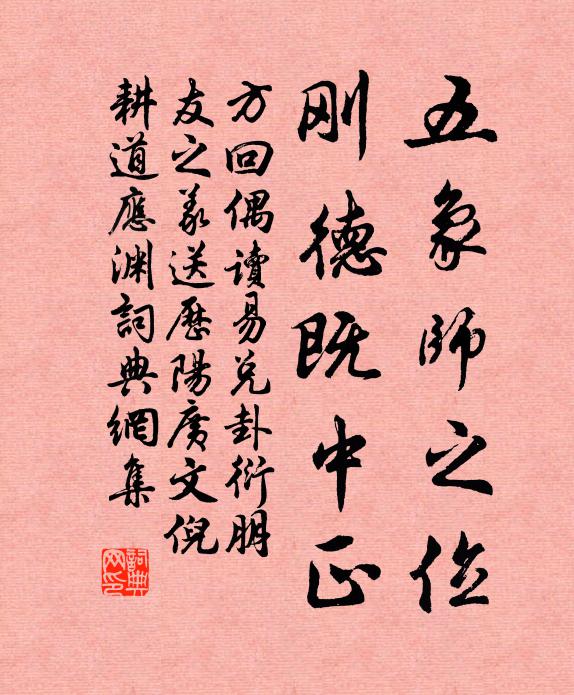 五象師之位
刚德既中正
方回偶讀易兌卦衍朋
友之義送歷陽廣文倪
耕道應淵詞典網集
詞典
网印